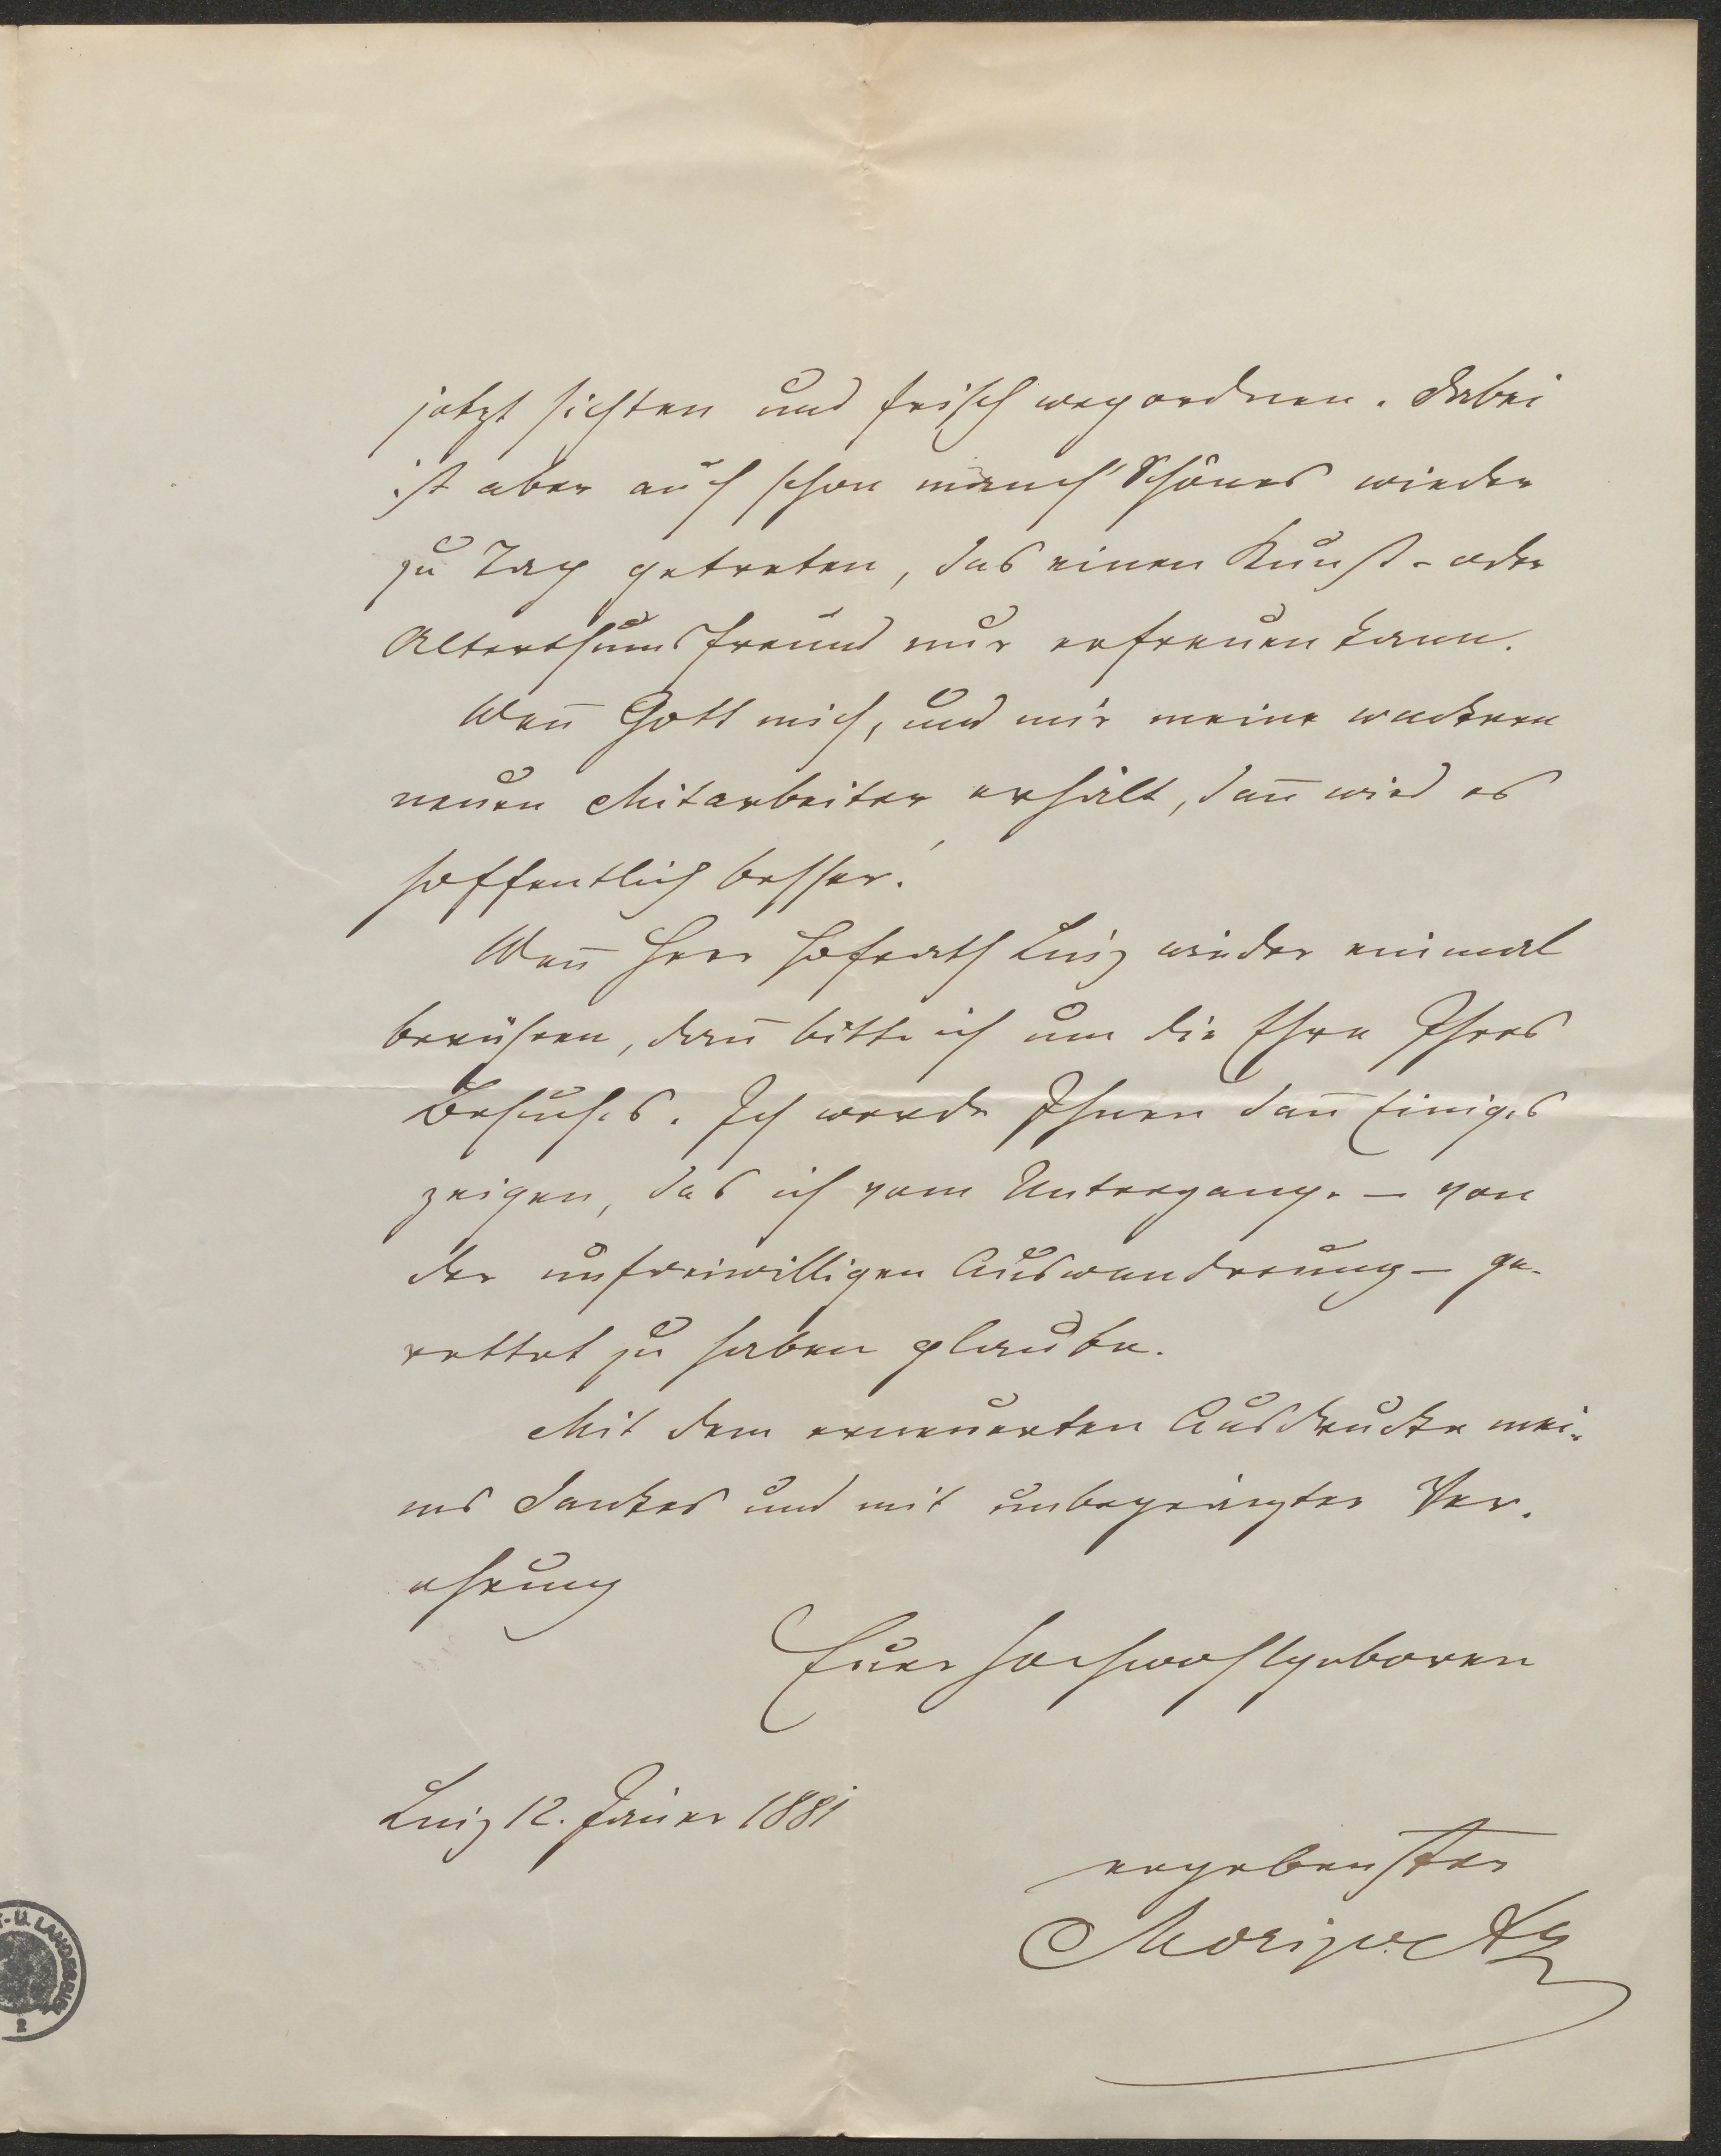 jetzt sichten und frisch wegordnen. Dabei
ist aber auch schon manch' Schönes wieder
zu Tag getreten, das einen Kunst- oder
Alterthumsfreund nur erfreuen kann.
Weñ Gott mich, und mir meine wackern
neuen Mitarbeiter erhält, dañ wird es
hoffentlich besser!
Weñ Herr Hofrath Linz wieder einmal
berühren, dañ bitte ich um die Ehre Ihres
Besuches. Ich werde Ihnen dañ Einiges
zeigen, das ich vom Untergange – von
der unfreiwilligen Auswanderung – ge-
rettet zu haben glaube.
Mit dem erneuerten Ausdrucke mei-
nes Dankes und mit unbegränzter Ver-
ehrung
Euer Hochwohlgeboren
Linz 12. Jäner 1881
ergebenster
LANDESBIBL
2